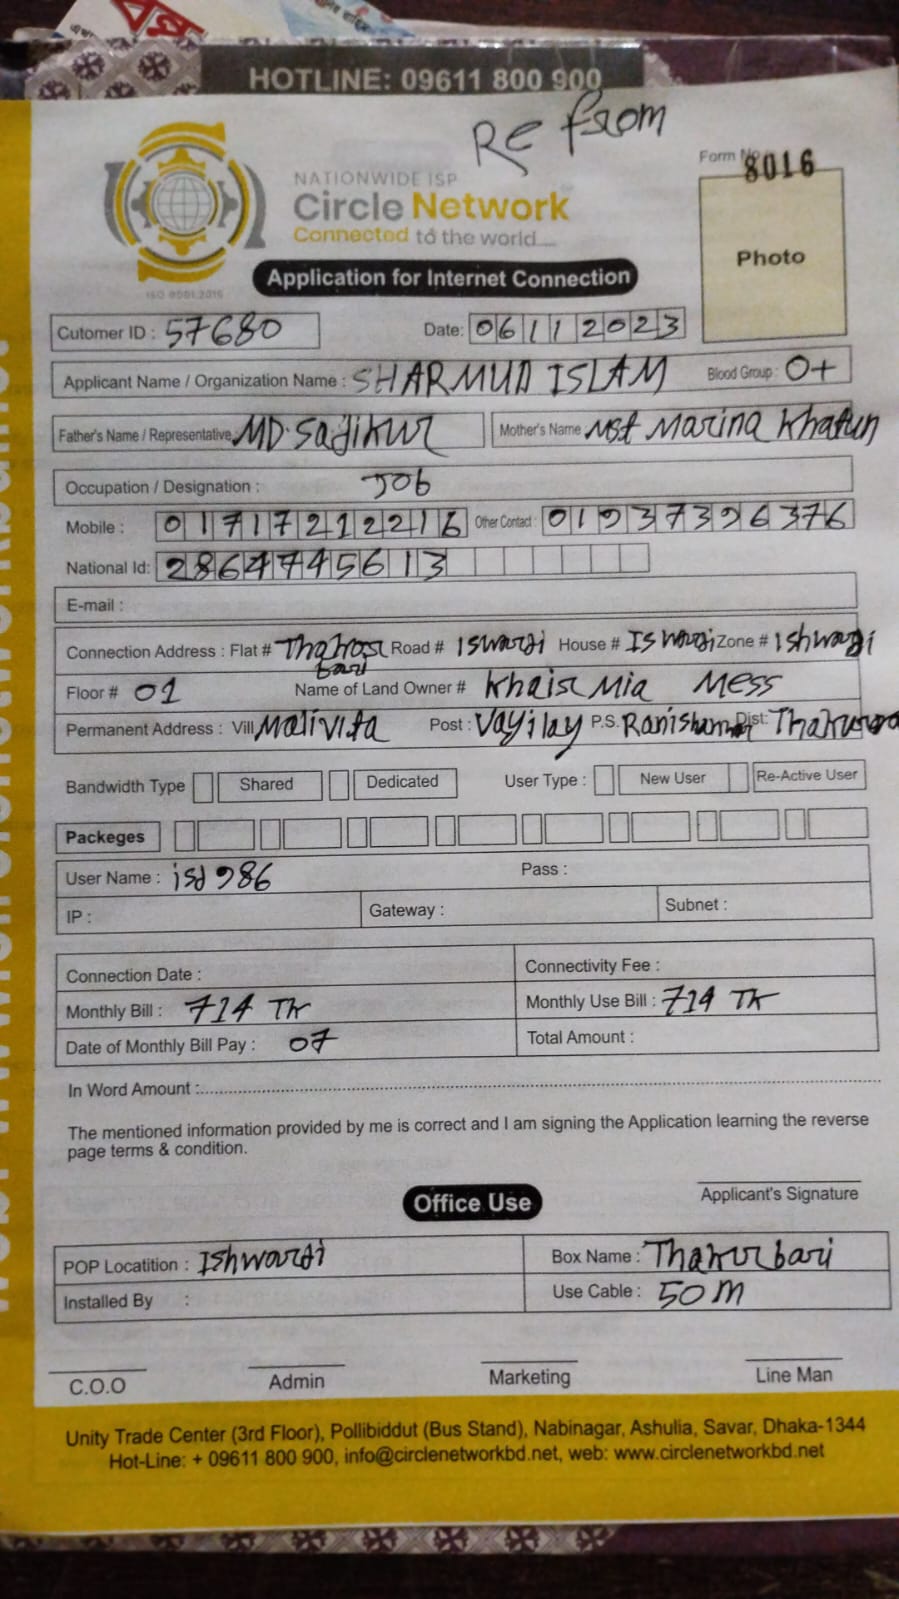 HOTLINE: 09611 800 900
Re from
Form No
8016
NATIONWIDE ISP
Circle Network
Connected to the world....
ISO 9001:2015
Photo
Application for Internet Connection
Cutomer ID : 57680 Date: 06112023
Applicant Name / Organization Name : SHARMUD ISLAM Blood Group : O+
Father's Name / Representative MD. Sadikur Mother's Name Mst Marina Khatun
Occupation / Designation : Job
Mobile : 01717212216 Other Contact : 01937396376
National Id: 2864745613
E-mail :
Connection Address : Flat # Road # Iswardi House # Iswardi Zone # Ishwardi
bari
Floor # 01 Name of Land Owner # Khair Mia Mess
Permanent Address : Vill Malivita Post : Vayilay P.S. Dist:
Bandwidth Type Shared Dedicated User Type : New User Re-Active User
Packeges
User Name : isd986 Pass :
IP : Gateway : Subnet :
Connection Date : Connectivity Fee :
Monthly Bill : 714 TK Monthly Use Bill : 714 TK
Date of Monthly Bill Pay : 07 Total Amount :
In Word Amount :
The mentioned information provided by me is correct and I am signing the Application learning the reverse
page terms & condition.
Applicant's Signature
Office Use
POP Locatition : Ishwardi Box Name : Thakur bari
Installed By : Use Cable : 50 M
C.O.O Admin Marketing Line Man
Unity Trade Center (3rd Floor), Pollibiddut (Bus Stand), Nabinagar, Ashulia, Savar, Dhaka-1344
Hot-Line: + 09611 800 900, info@circlenetworkbd.net, web: www.circlenetworkbd.net